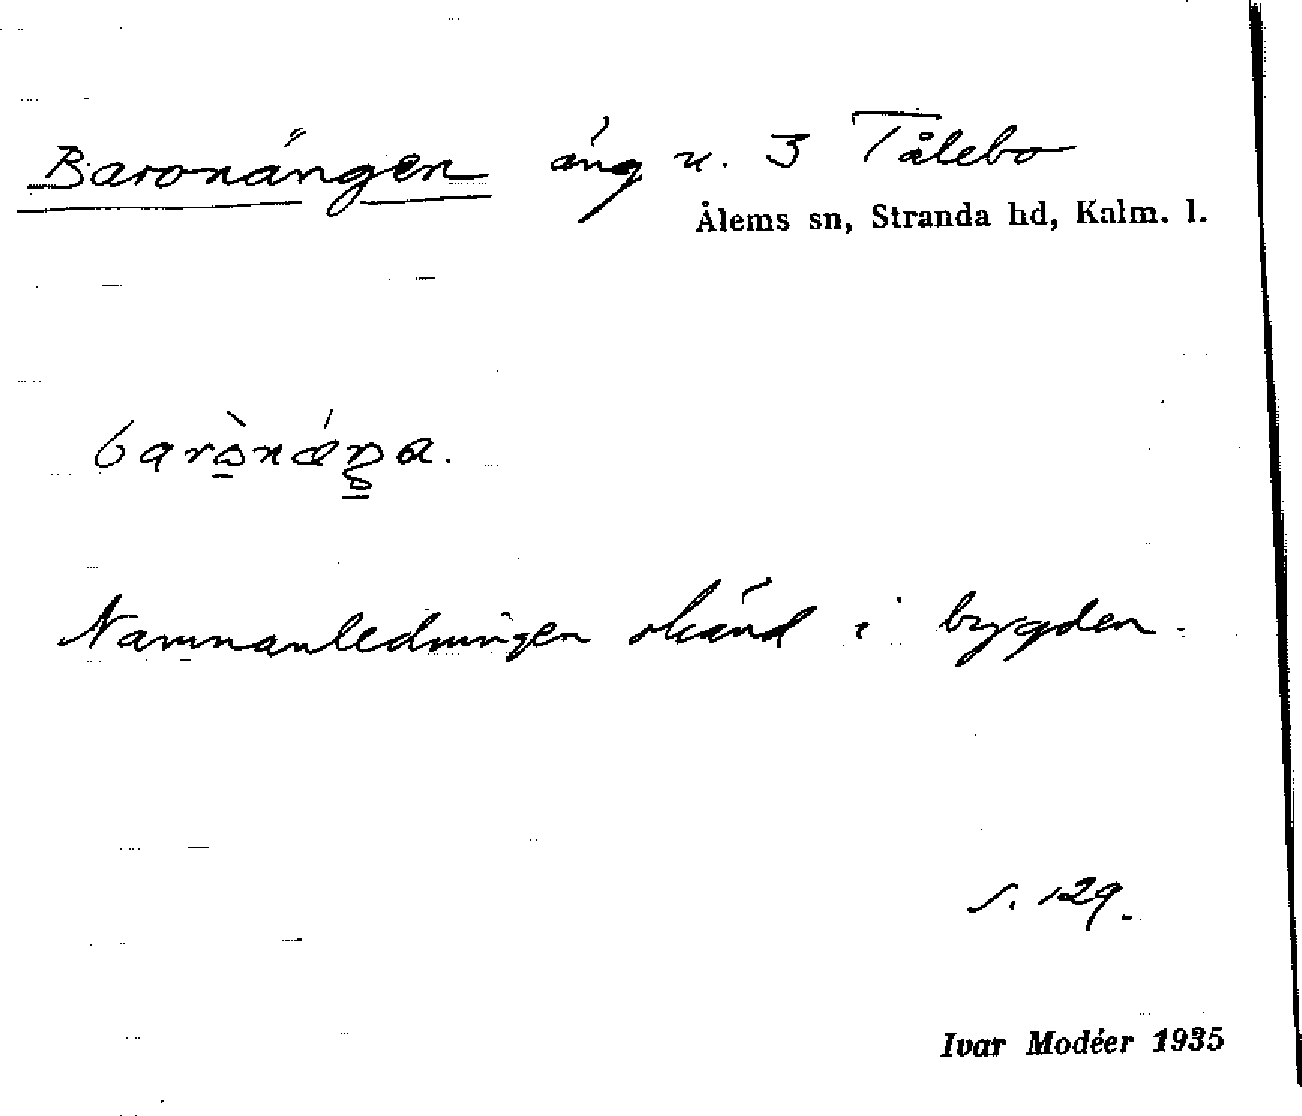 Baronängen äng u. 3 Tålebo
Ålems sn, Stranda hd, Kalm. l.
Namnanledningen okänd i bygden.
S. 129.
Ivar Modéer 1935